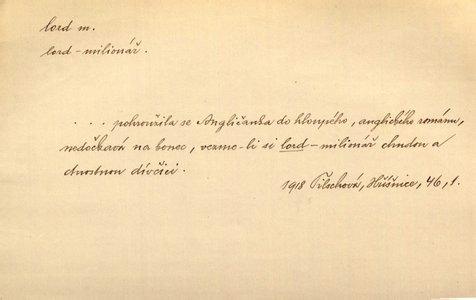 lord m.
lord-milionář.
. . . pohroužila se Angličanka do hloupého, anglického románu,
nedočkavá na konec, vezme-li si lord-milionář chudou a
ctnostnou dívčici.
1918 Tilschová, Hříšnice, 46, 1.